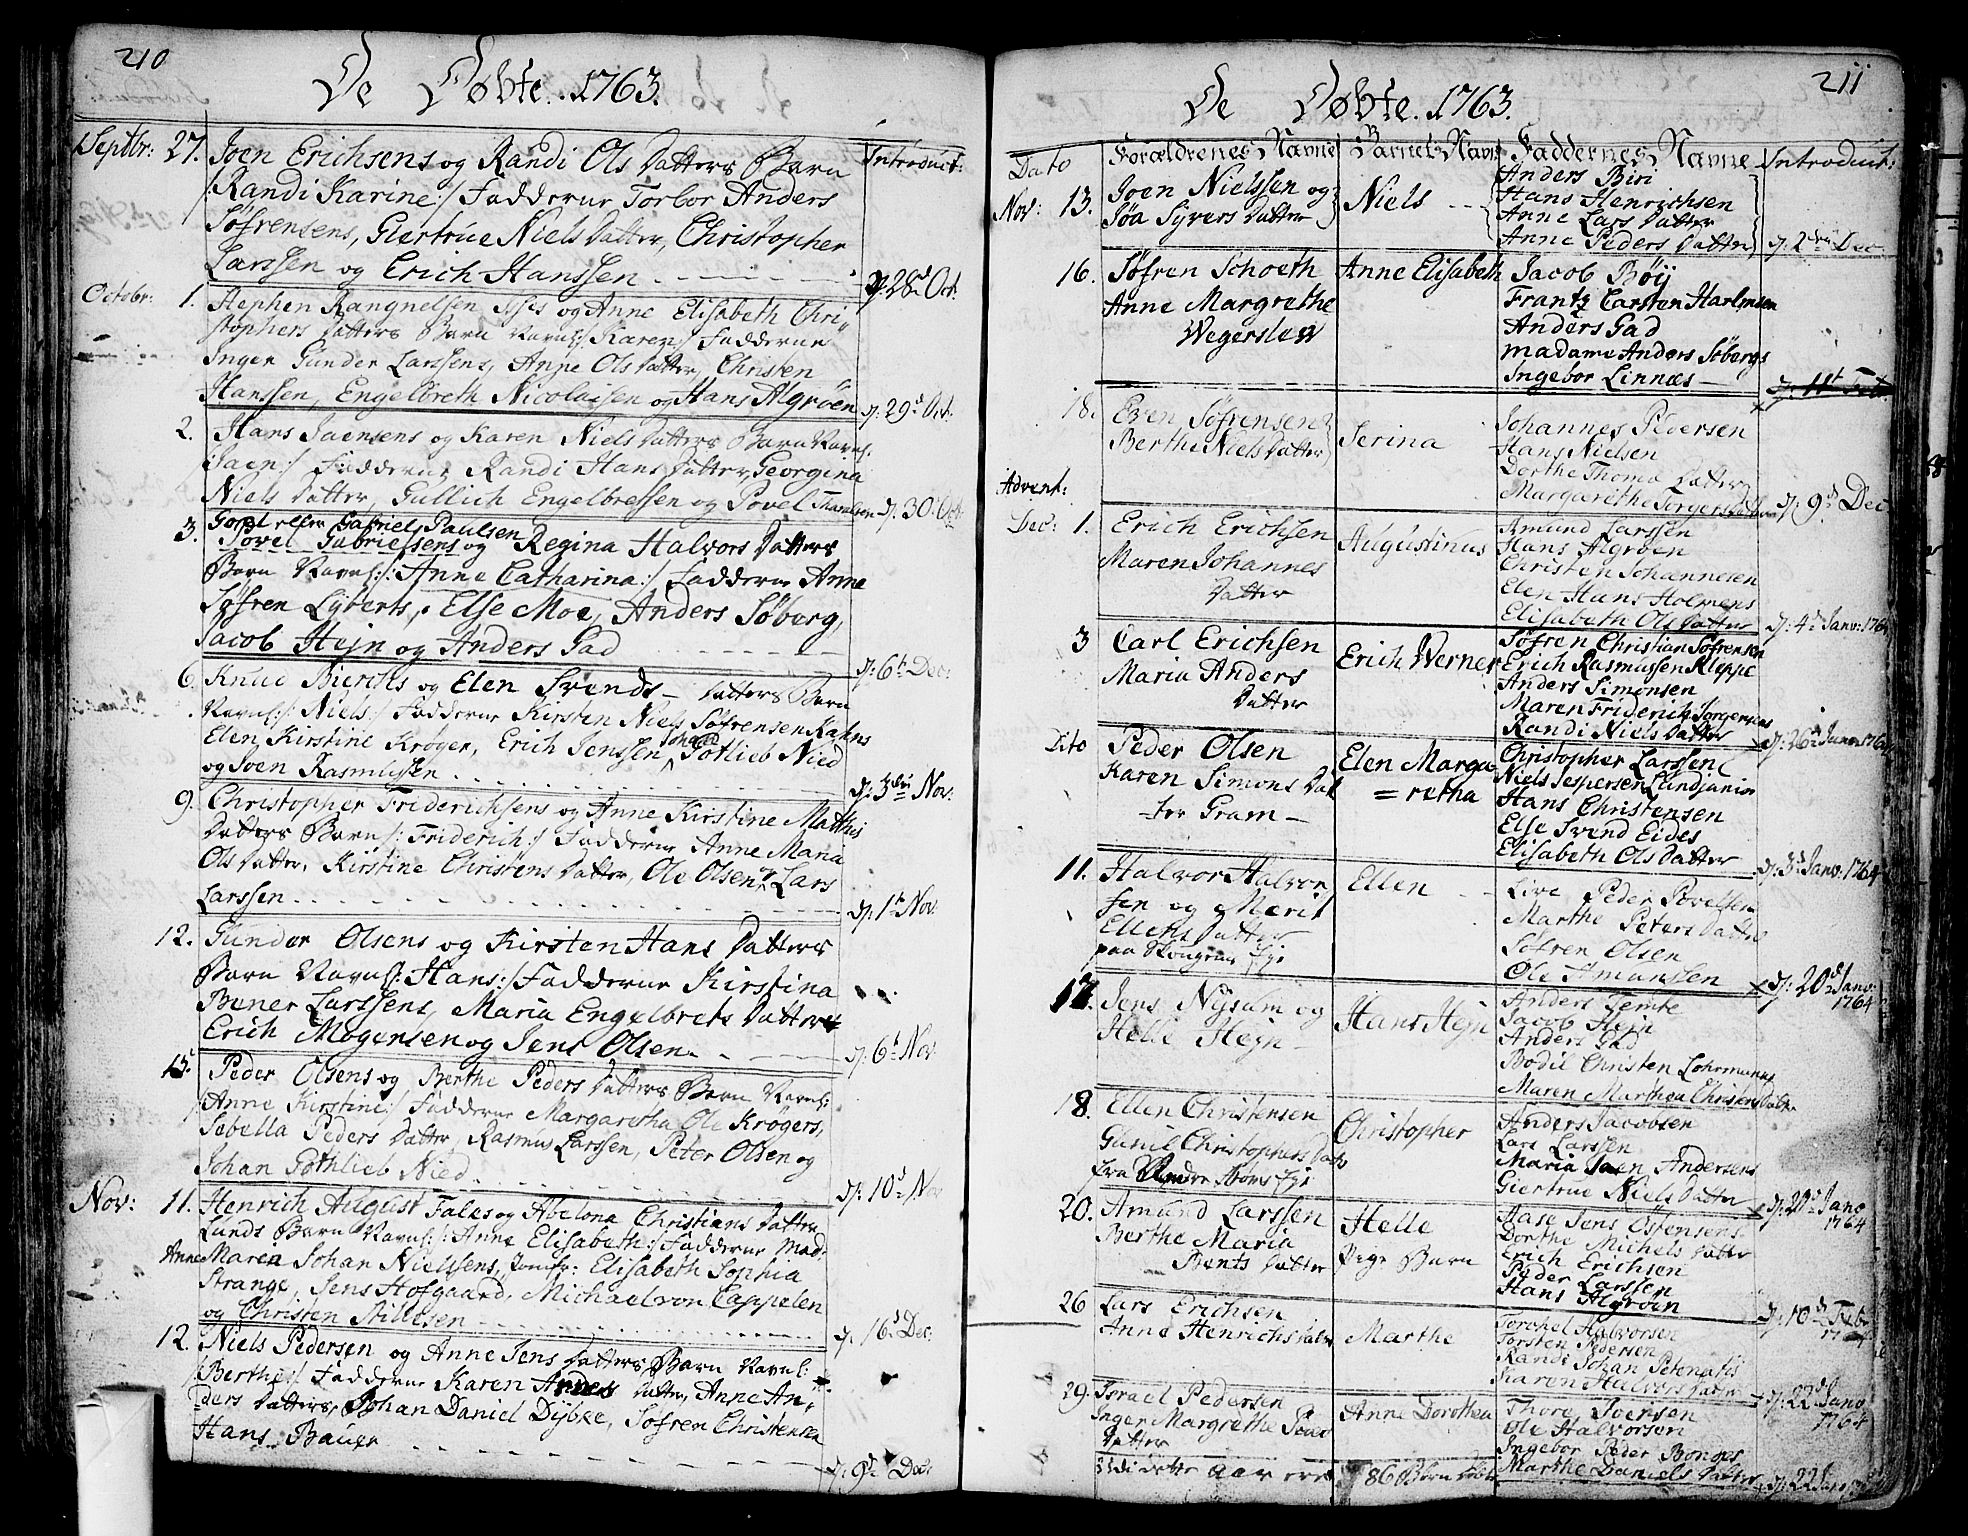 210
De Døbte. 1763.
Septbr: 27. Joen Erichsens og Randi Ols Datters Barn
/:Randi Karine:/ Fadderne Torbor Anders
Søfrensens, Giertrue Niels Datter, Christopher
Larssen og Erich Hanssen
Introduct:
28 Oct.
Octobr: 1. Stephen og Anne Elisabeth Chri-
stophers Datters Barn Navnl: /:Karen:/ Fadderne
Inger Gunder Larssens, Anne Ols Datter, Christen
Hanssen, Engelbreth Nicolaisen og Hans Algrøen
29 Oct.
2. Hans Jaensens og Karen Niels Datters Barn Navnl:
/:Jaen:/ Fadderne Randi Hans Datter, Georgina
Niels Datter, Gullich Engelbretsen og Povel
30 Oct
eller Gabriel Paulsen
3. Povel Gabrielsens og Regina Halvors Datters
Barn Navnl: /:Anne Catharina:/ Fadderne Anne
Søfren Lyberts, Else Moe, Anders Søberg,
Jacob Hejn og Anders Gad
6 Dec:
6. Knud og Elen Svends Datters Barn
Navnl: /:Niels:/ Fadderne Kirsten Niels Søfrensen Kahns
Elen Kirstine Krøger, Erich Jenssen, Johan Gotlieb Nied
og Joen Rasmussen
3 Nov:
9. Christopher Friderichsens og Anne Kirstine Mathis
Datters Barn /:Friderich:/ Fadderne Anne Maria
Ols Datter, Kirstine Christens Datter, Ole Olsen & Lars
Larssen
1 Nov.
12. Gunder Olsens og Kirsten Hans Datters
Barn Navnl: /:Hans:/ Fadderne Kirstina
Bener Larssens, Maria Engelbrets Datter
Erich Mogensen og Jens Olsen
6 Nov
Peder Olsens og Berthe Peders Datters Barn Navnl:
/:Anne Kirstine:/ Fadderne Margaretha Ole Krøgers,
Sebella Peders Datter, Rasmus Larssen, Peter Olsen og
Johan Gothlieb Nied
10 Nov
Nov: 11. Henrich August Fales og Abelona Christians Datter
Lunds Barn Navnl: /:Anne Elisabeth:/ Fadderne Mad:
Anne Maren Johan Nielssens, Jomfr: Elisabeth Sophia
Strange, Jens Hofgaard, Michael von Cappelen
og Christen Stillesen
16 Dec:
12. Niels Pedersen og Anne Jens Datters Barn Navnl:
/:Berthe:/ Fadderne Karen Anders Datter, Anne An-
ders Datters, Johan Daniel Dybke, Søfren Christensen
Hans Bauer
9 Dec:
211
De Døbte. 1763.
Dato Forældrenes Navne Barnets Navn Faddernes Navne Introduct:
Nov: 13. Joen Nielssen og Niels Anders Biri
Søa Syvers Datter Hans Henrichsen
Anne Lars Datter
Anne Peders Datter 2 Dec
16. Søfren Schoeth Anne Elisabeth Jacob Bøij
Anne Margrethe Frantz Carsten Hartman
Wegerslew Anders Gad
Madame Anders Søbergs
Ingebor Linnæs
11 Feb
18. Even Søfrensen Serina Johannes Pedersen
Berthe Niels Datter Hans Nielsen
Dorthe Thomæ Datter
Margarethe 9 Dec
Advent:
Dec: 1. Erich Erichsen Augustinus Amund Larssen
Maren Johannes Hans Algrøen
Datter Christen Johannesen
Elen Hans Holmens
Elisabeth Ols Datter 4 Janv: 1764
3 Carl Erichsen Erich Werner Søfren Christian Søfrensen
Maria Anders Erich Rasmussen Kleppe
Datter Anders Simonsen
Maren Friderich Jørgensens
Randi Niels Datter 26 Janv 1764
Dito Peder Olsen Elen Marga= Christopher Larssen
Karen Simons Dat =retha Niels Jespersen
ter Gram Hans Christensen
Else Svend Eides
Elisabeth Ols Datter 3 Janv: 1764
11. Halvor Halvor Ellen Live Peder Povelsen
sen og Merit Marthe Peters Datter
Ellens Datter Søfren Olsen
paa Eje Ole Amunssen 20 Janv: 1764
12. Jens Nysum og Hans Hejn Anders Temte
Helle Hejn Jacob Hejn
Anders Gad
Bodil Christen Lohrmanns
Maren Marthea Christens Datter
18. Ellen Christensen Christopher Anders Jacobsen
Gunil Christophers Datt Lars Larssen
fra Strøms Eje Maria Jaen Andersens
Giertrue Niels Datter 20 Janv 1764
20. Amund Larssen Helle Aase Jens Østensens
Berthe Maria Pige Barn Dorthe Michels Datter
Bents Datter Erich Erichsen
Peder Larssen
Hans Algrøen 10 Feb
26 Lars Erichsen Marthe Torchel Halvorsen
Anne Henrichs Datter Torsten Pedersen
Randi Johan
Karen Halvors Datter 22 Janv 1764
29. Israel Pedersen Anne Dorothea Thore Joensen
Inger Margrethe Ole Halvorsen
Datter Ingebor Peder
Marthe Daniels Datter 22 Janv
di dette Aar ere 86 Børn